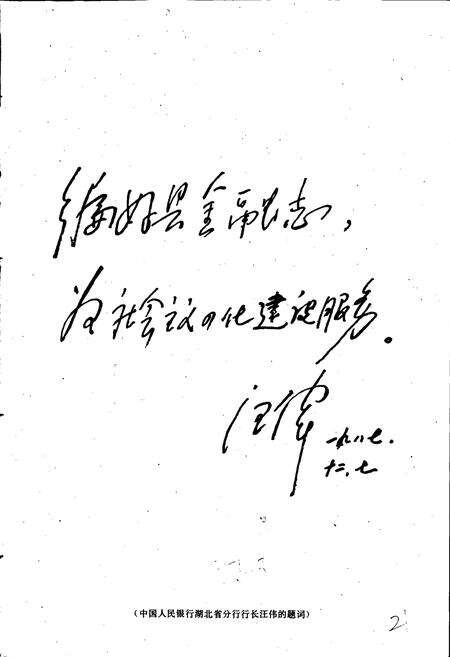 编好县金融志，
为社会主义四化建设服务。
汪伟 一九八七.
十二.七
（中国人民银行湖北省分行行长汪伟的题词）
2